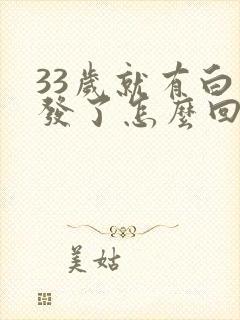 33歲就有白
發了怎麼回
美姑